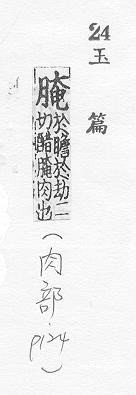 24
玉篇
腌
於瞻於劫二
切醋腌肉也
(肉部. p124)